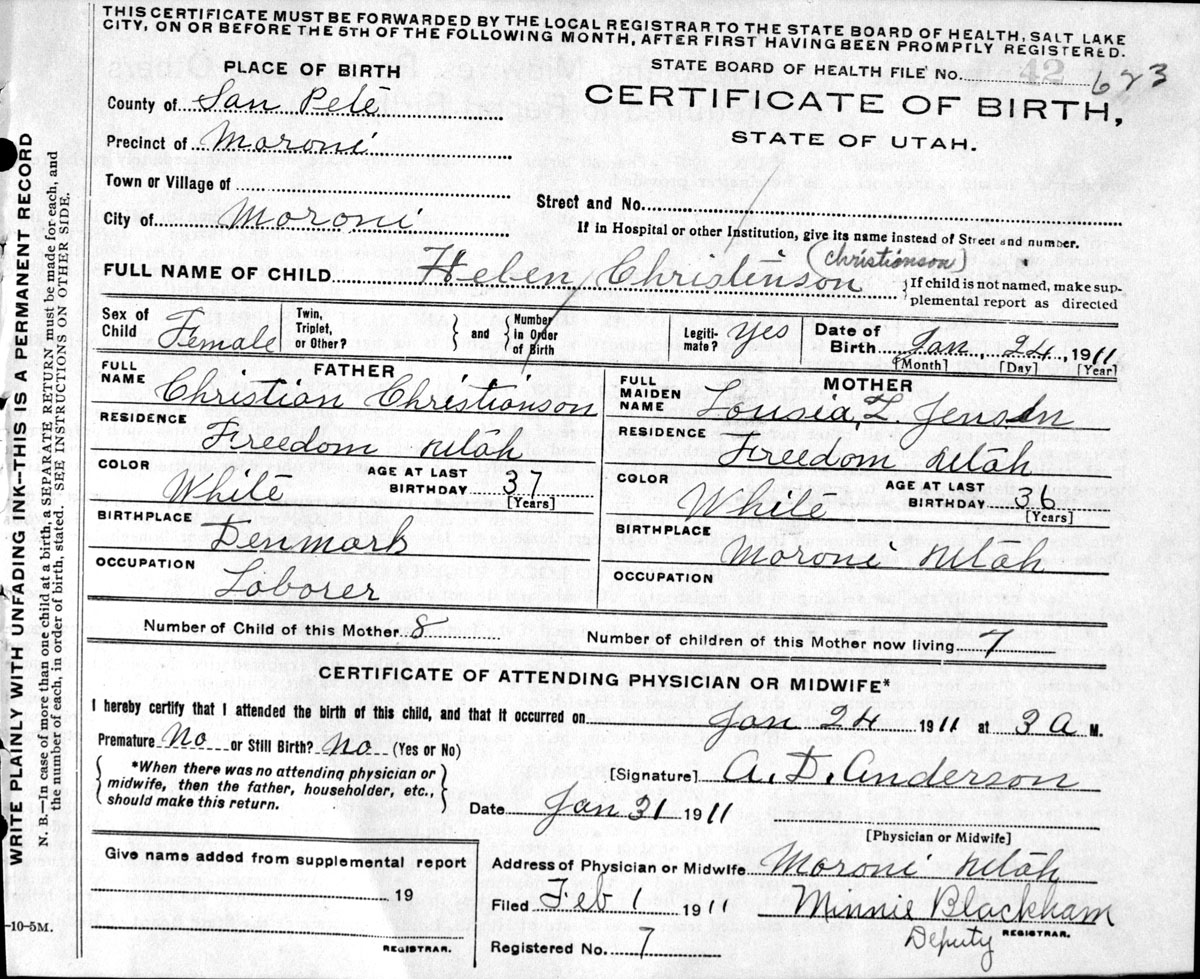 THIS CERTIFICATE MUST BE FORWARDED BY THE LOCAL REGISTRAR TO THE STATE BOARD OF HEALTH, SALT LAKE
CITY, ON OR BEFORE THE 5TH OF THE FOLLOWING MONTH, AFTER FIRST HAVING BEEN PROMPTLY REGISTERED.
STATE BOARD OF HEALTH FILE No. 42 623
PLACE OF BIRTH
CERTIFICATE OF BIRTH,
STATE OF UTAH.
County of San Pete
Precinct of Moroni
Town or Village of
City of Moroni
Street and No.
If in Hospital or other Institution, give its name instead of Street and number.
FULL NAME OF CHILD Helen Christenson (Christionson)
If child is not named, make sup-
plemental report as directed
Sex of Child Female
Twin, Triplet, or Other?
and
Number in Order of Birth
Legiti-mate? Yes
Date of Birth Jan, 24, 1911
[Month] [Day] [Year]
FATHER
FULL NAME Christian Christianson
RESIDENCE Freedom Utah
COLOR White
AGE AT LAST BIRTHDAY 37
[Years]
BIRTHPLACE Denmark
OCCUPATION Laborer
MOTHER
FULL MAIDEN NAME Lousia, L. Jensen
RESIDENCE Freedom Utah
COLOR White
AGE AT LAST BIRTHDAY 36
[Years]
BIRTHPLACE Moroni Utah
OCCUPATION
Number of Child of this Mother 8
Number of children of this Mother now living 7
CERTIFICATE OF ATTENDING PHYSICIAN OR MIDWIFE*
I hereby certify that I attended the birth of this child, and that it occurred on Jan 24 1911 at 3 A M.
Premature No or Still Birth? No (Yes or No)
*When there was no attending physician or
midwife, then the father, householder, etc.,
should make this return.
[Signature] A. D. Anderson
Date Jan 31 1911
[Physician or Midwife]
Give name added from supplemental report
19
REGISTRAR.
Address of Physician or Midwife Moroni Utah
Filed Feb 1 1911 Minnie Blackham
Deputy REGISTRAR.
Registered No. 7
-10-5M.
WRITE PLAINLY WITH UNFADING INK—THIS IS A PERMANENT RECORD
N. B.—In case of more than one child at a birth, a SEPARATE RETURN must be made for each, and
the number of each, in order of birth, stated. SEE INSTRUCTIONS ON OTHER SIDE.